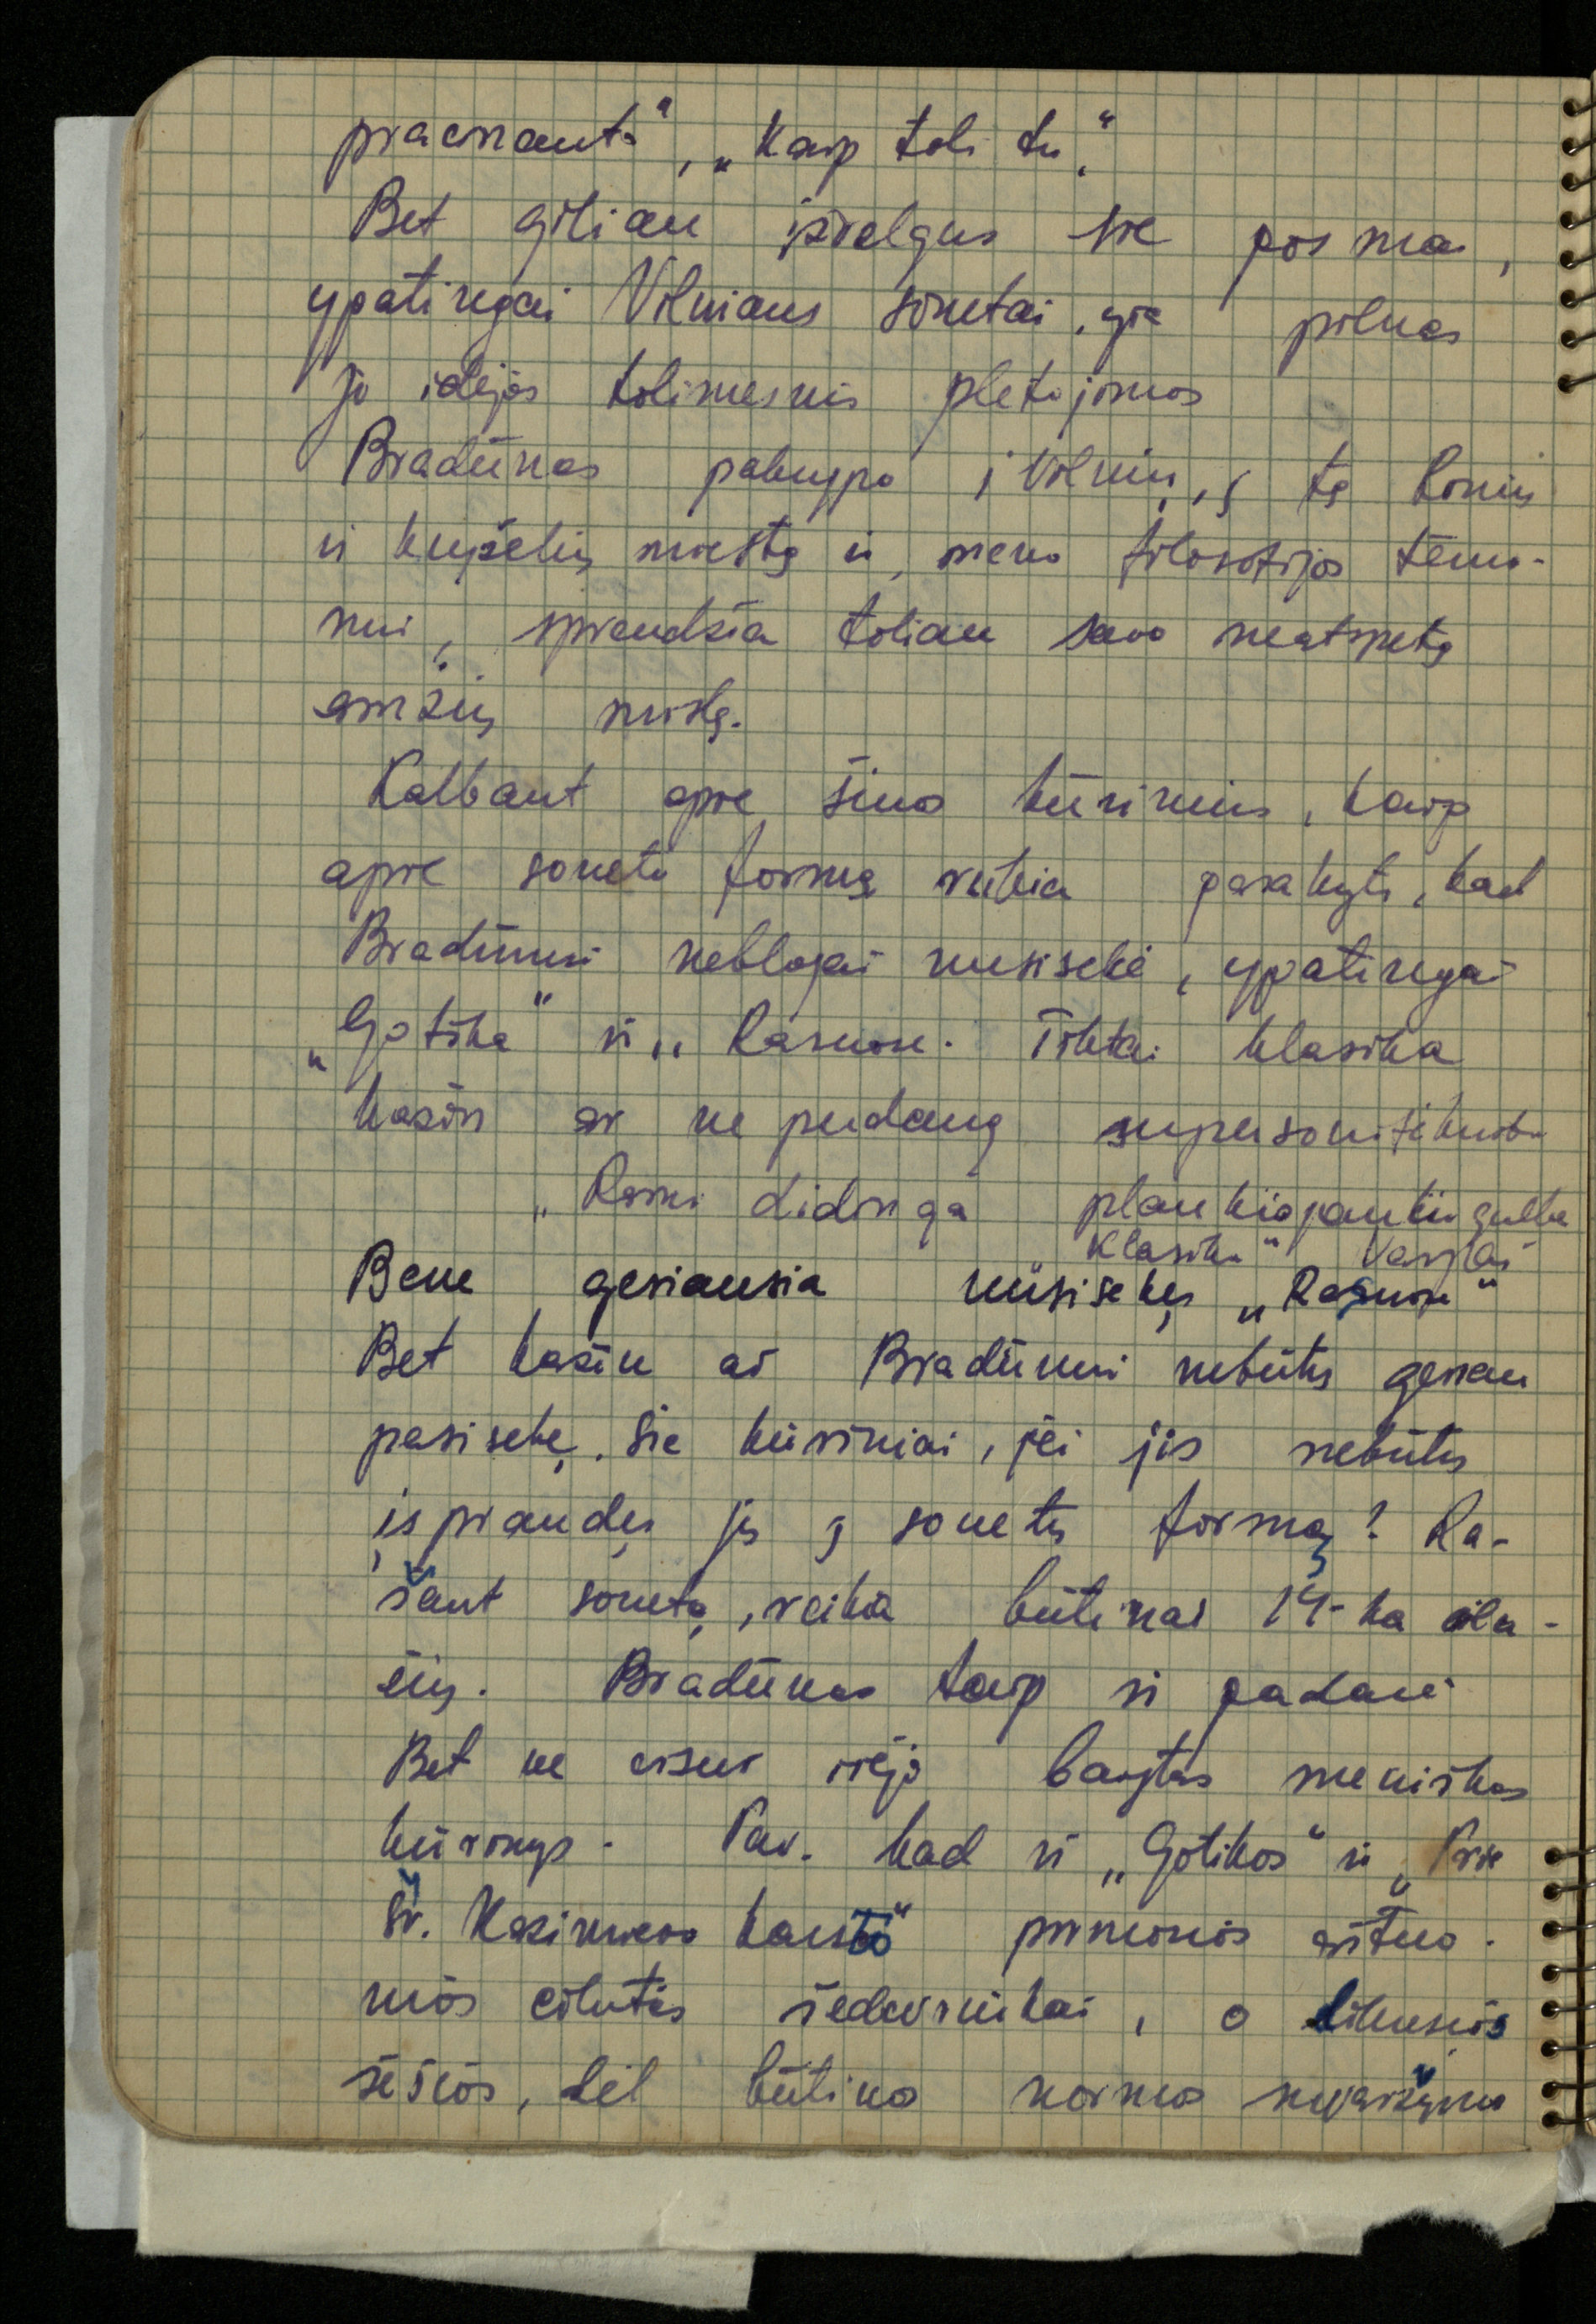 praeinant“, „Kaip toli tu.“
Bet giliau įžvelgus šie posmai,
ypatingai Vilniaus sonetai, yra pilnas
jo idėjos tolimesnis plėtojimas
Bradūnas pabėgo į Vilnių, į tą kovų
ir kryželių miestą ir, meno filosofijos temo-
mis, sprendžia toliau savo neatspėtą
amžių mįslę.
Kalbant apie šiuos kūrinius, kaip
apie soneto formą reikia pasakyti, kad
Bradūnui neblogai nusisekė, ypatingai
„Gotika“ ir „Rasuose. Tiktai klasika
kažin ar ne perdaug supersonifikuota
„Rami didinga plaukia paukščių gulbė
„Klasika“ Varpai
Bene geriausia nusisekęs „Rasuose“
Bet kažin ar Bradūnui nebūtų geriau
pasisekę šie kūriniai, jei jis nebūtų
įspraudęs jų į sonetų formą? Ra-
šant sonetą, reikia būtinai 14-ka eilu-
čių. Bradūnas taip ir padarė
Bet ne visur išėjo baigtas meniškas
kūrinys. Pav. kad ir „Gotikos“ ir „Prie
Šv. Kazimiero karsto“ pirmosios aštuo-
nios eilutės šedevriškai, o likusios
šešios, dėl būtino normos suvaržymo